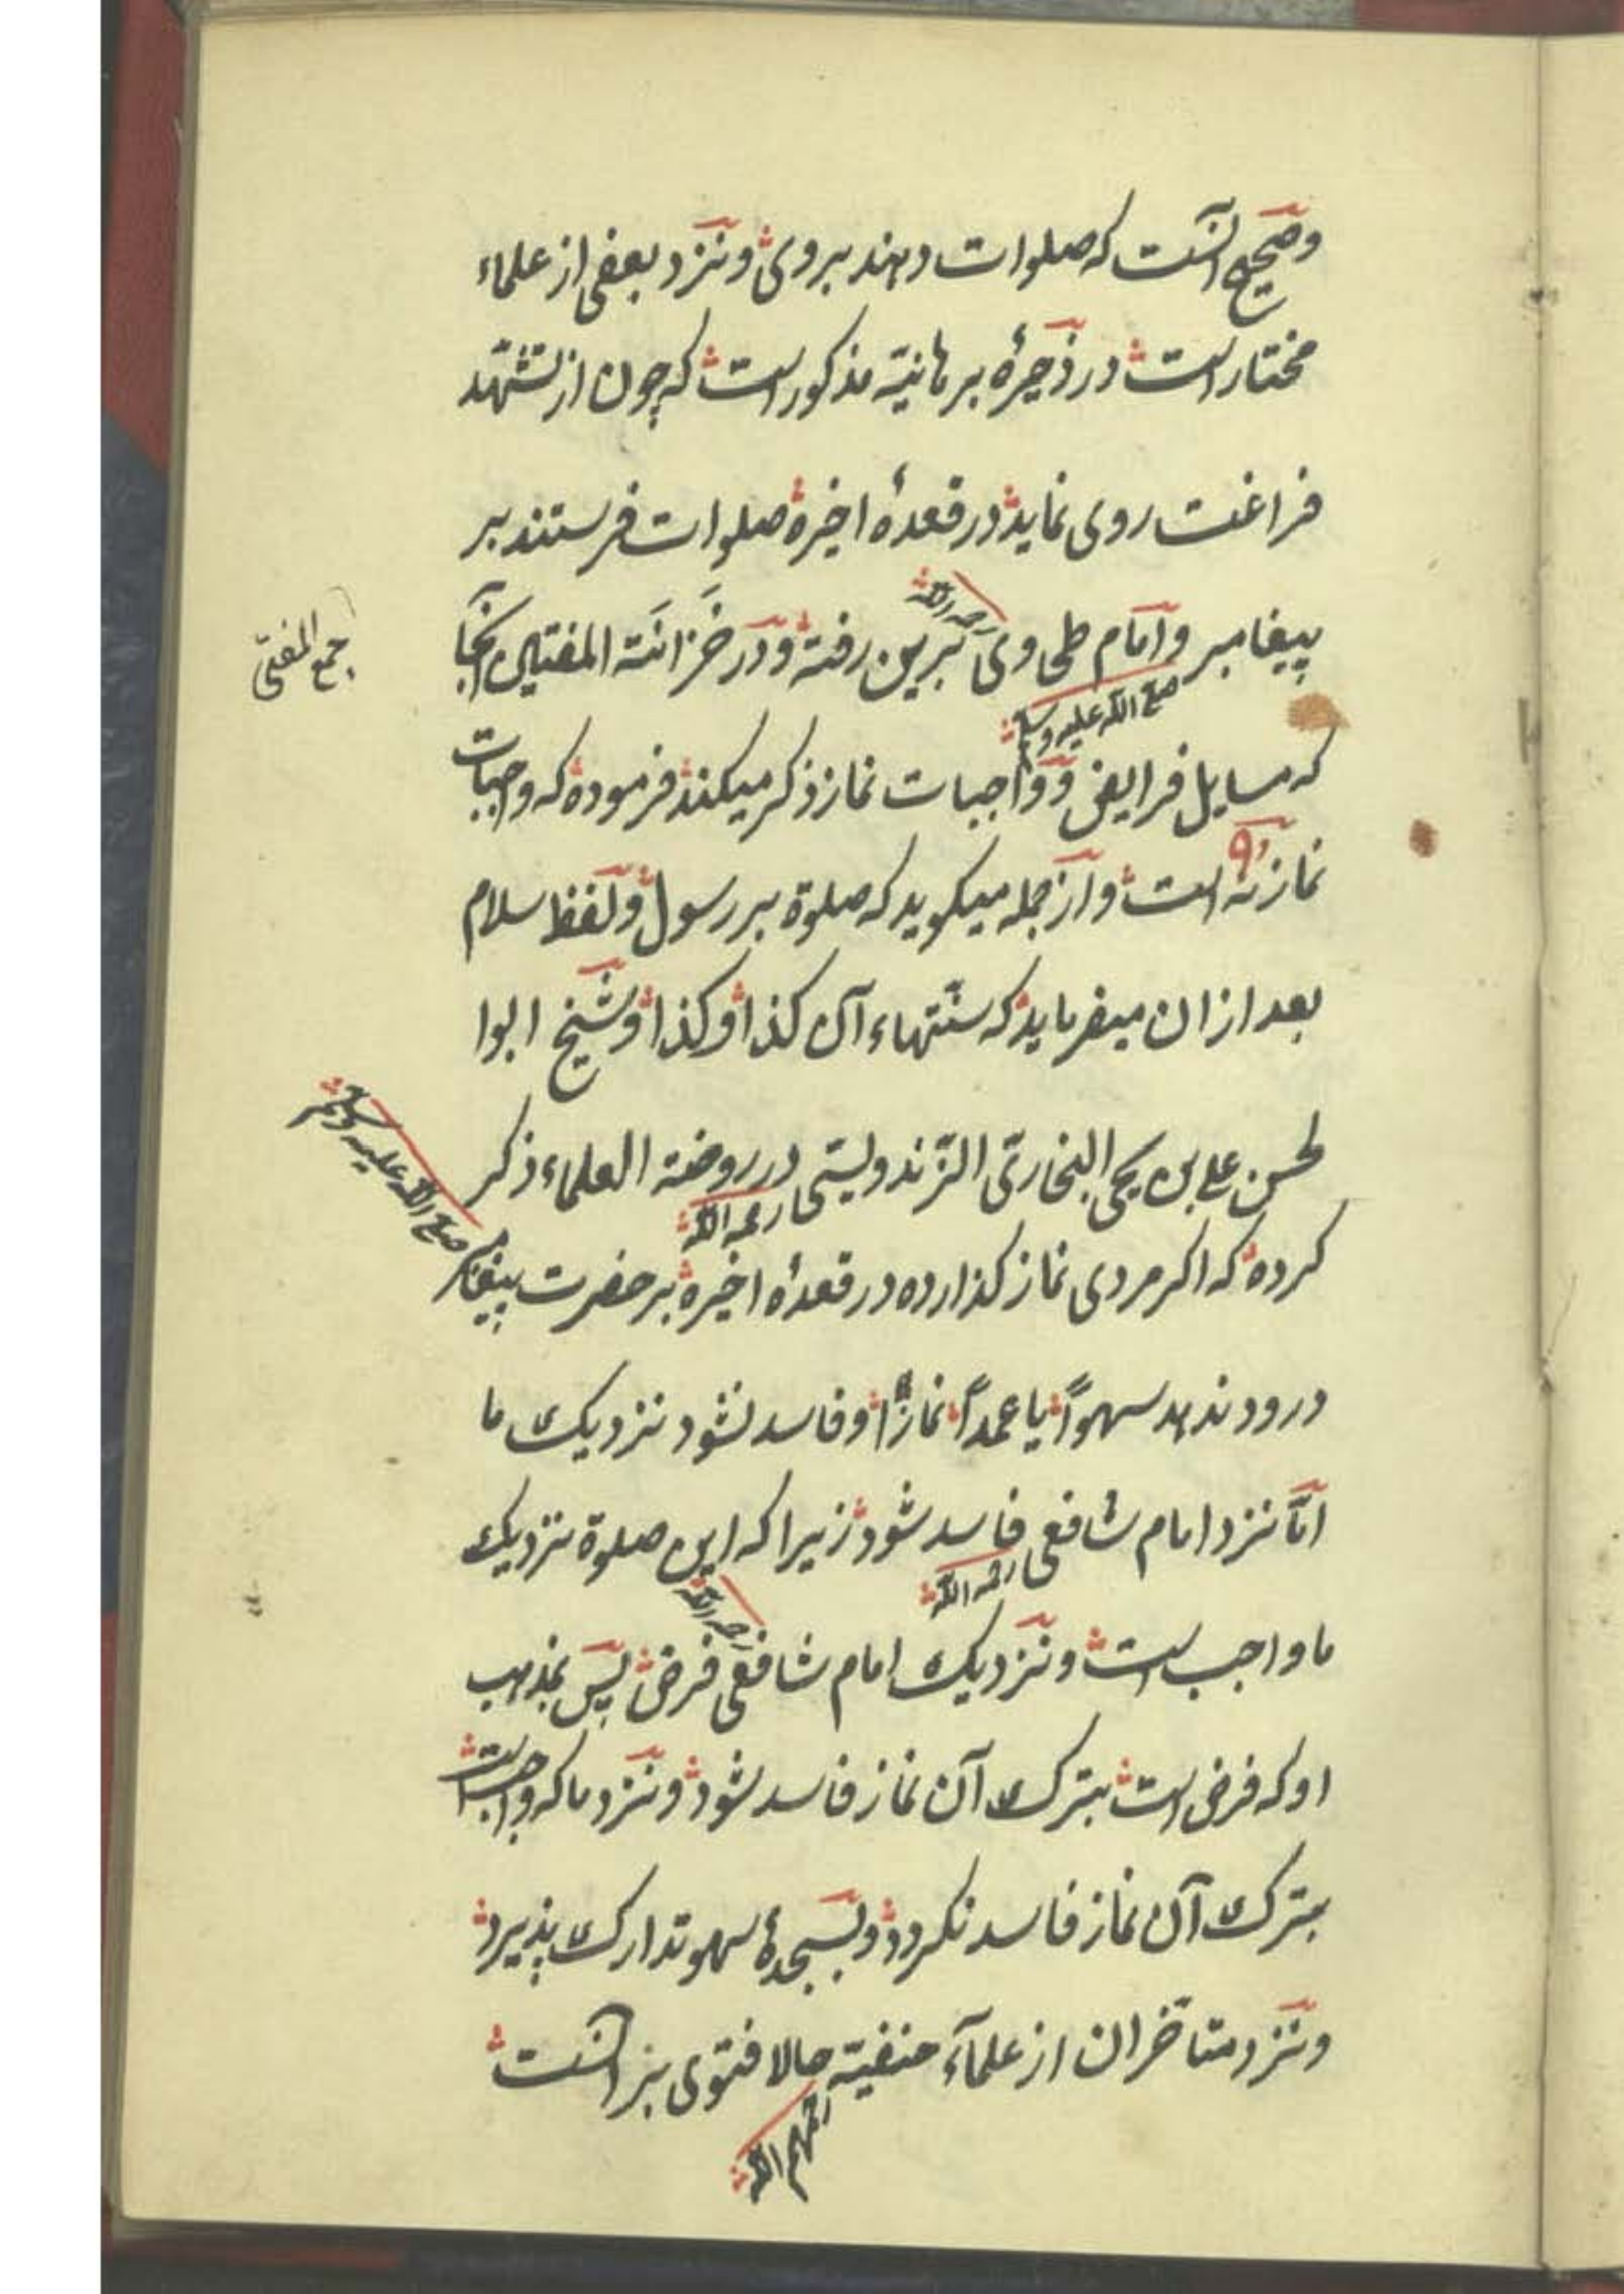 وصحیح آنست که صلوات دهند بروی ونزد بعضی از علماء
مختار است در ذخیرهٔ برهانیّه مذکور است که چون از تشهّد
فراغت روی نماید در قعدهٔ اخیره صلوات فرستند بر
پیغامبر صلی الله علیه وسلم وامام طحاوی رحمه الله بَرین رفته ودر خَزانَة المفتیین آنجا
جمع المفتی
که مسایل فرایض وواجبات نماز ذکر میکند فرموده که واجبات
نماز نُه ۹ است وازجمله میکوید که صلوة بر رسول ولفظ سلام
بعد ازان میفرماید که سنّتهاء آن کذا وکذا وشیخ ابوا
لحسن علی بن یحیی البخاریّ الزّندویستی رحمه الله در روضة العلماء ذکر
کرده که اکر مردی نماز کذارده در قعدهٔ اخیره بر حضرت پیغامبر صلی الله علیه وسلم
درود ندهد سهواً یا عمداً نماز او فاسد نشود نزدیک ما
امّا نزد امام شافعی رحمه الله فاسد شود زیرا که این صلوة نزدیک
ما واجب است ونزدیک امام شافعی رحمه الله فرض پس بمذهب
او که فرض است بترک آن نماز فاسد شود ونزد ما که واجبست
بترک آن نماز فاسد نکردد وبسجدهٔ سهو تدارک پذیرد
ونزد متاخّران از علمآء حنفیّه رحمهم الله حالا فتوی بر آنست